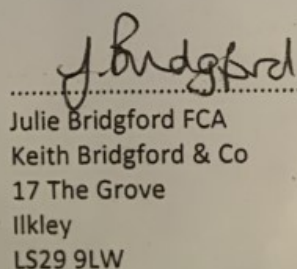 J. Bridgford
Julie Bridgford FCA
Keith Bridgford & Co
17 The Grove
Ilkley
LS29 9LW